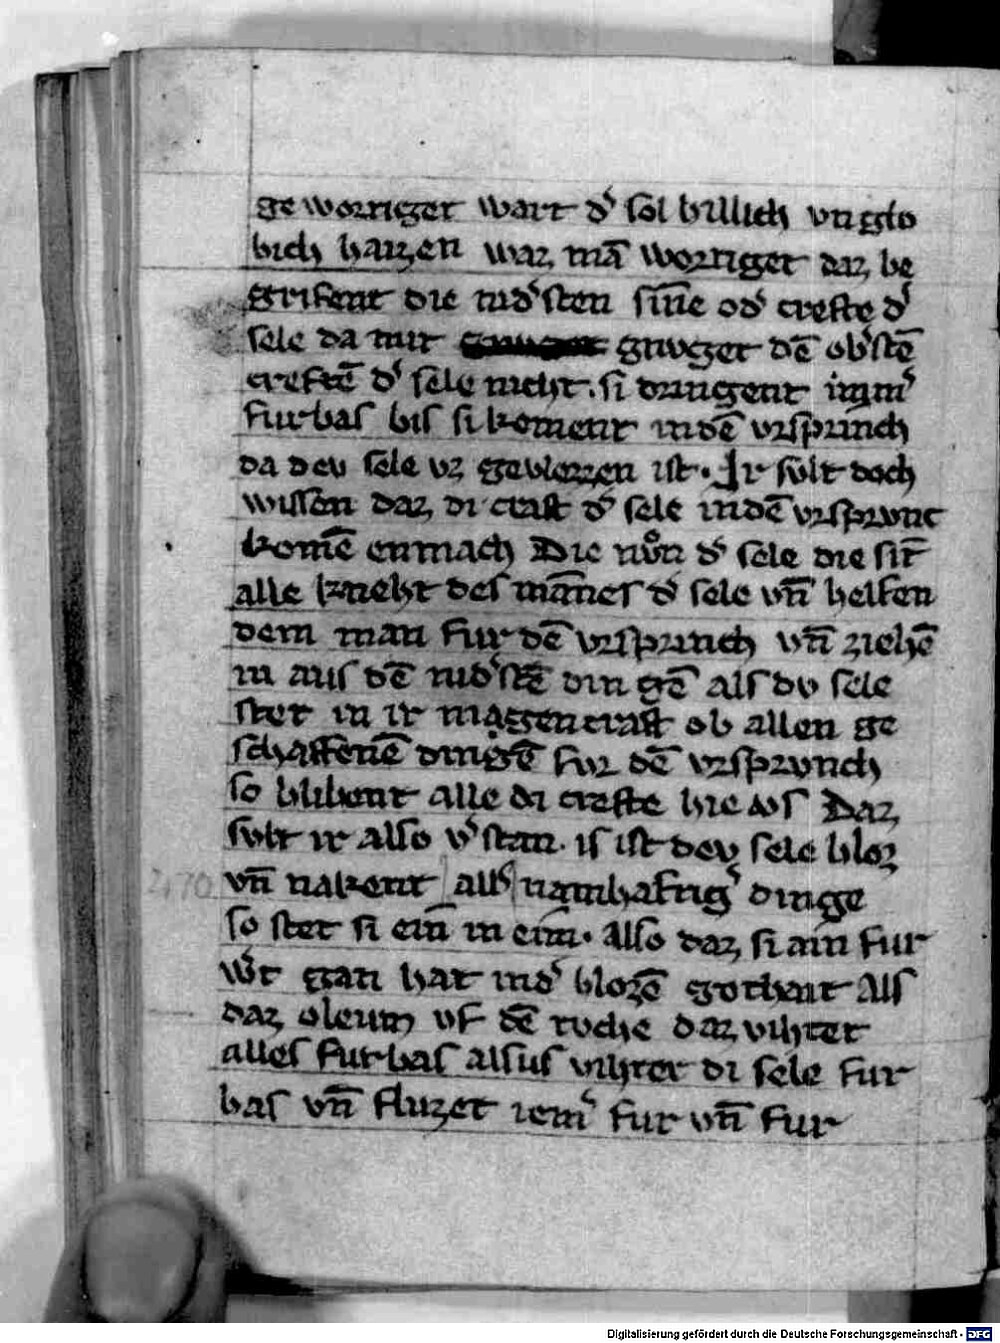 geworriget wart d᾽ sol billich vnglo
bich haizen waz mā worriget daz be
grifent die nid᾽sten sīne od᾽ crefte d᾽
sele da mit gnvget dē ob᾽stē
creftē d᾽ sele nicht. si dringent im̄᾽
furbas bis si koment in dē vrsprinch
da dev sele vz geworzen ist. Ir svlt doch
wissen daz di craft d᾽ sele in dē vrsprvnc
komē enmach Die nvͦn d᾽ sele die sīt
alle kneht des mānes d᾽ sele vn̄ helfen
dem man fur dē vrsprinch vn̄ ziehē
in aus dē nid᾽stē dingē als dv sele
stet in ir magencraft ob allen ge
schaffenē dingē fvr dē vrsprvnch
so blibent alle di crefte hie vos Daz
svlt ir also v᾽stan. is ist dev sele bloz
vn̄ nakent all᾽ namhaftig᾽ dinge
so stet si ein̄ in eim̄. Also daz si ain fur
w᾽t gan hat in d᾽ blozē gothait Als
daz oleum vf dē tvche daz vihtet
alles furbas alsus vihtet di sele fur
bas vn̄ fluzet iem᾽ fur vn̄ fur
2470
Digitalisierung gefördert durch die Deutsche Forschungsgemeinschaft - DFG